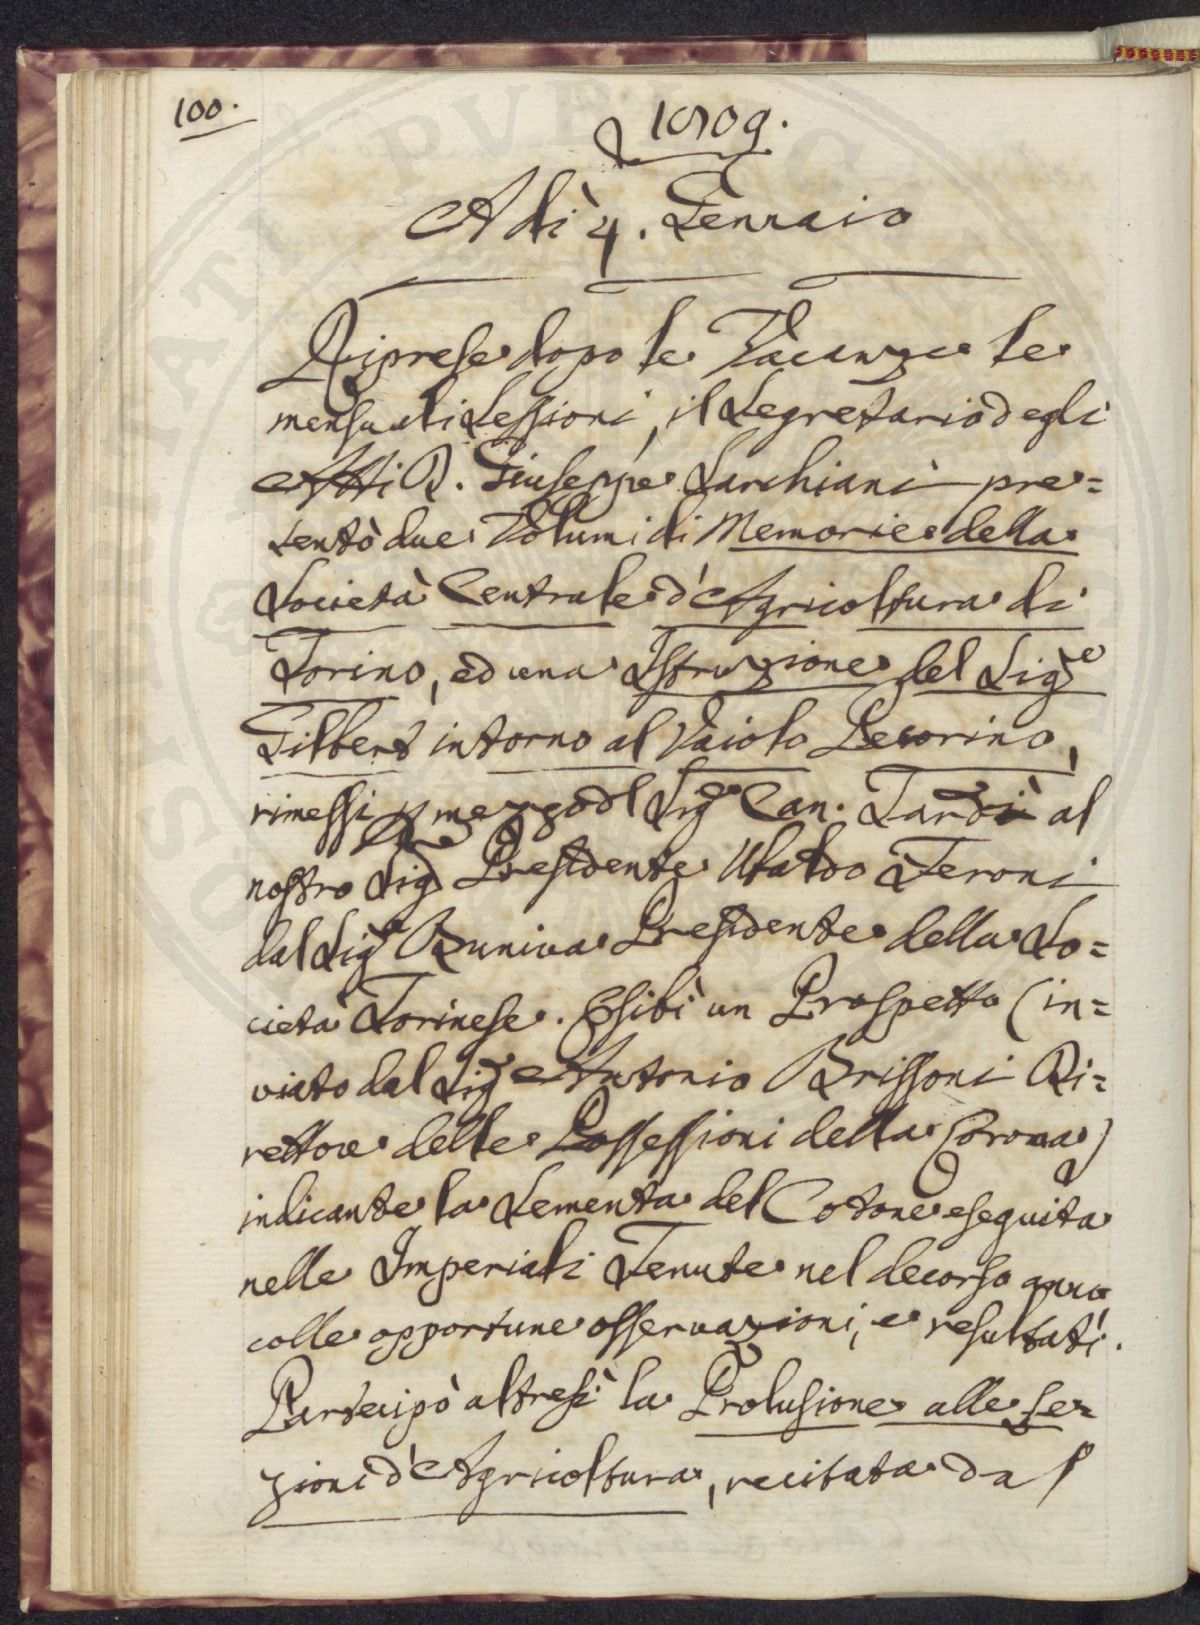 100.
1809.
Adì 4. Gennaio
Riprese dopo le Vacanze le
mensuali Sessioni, il Segretario degli
Atti D. Giuseppe Sarchiani pre=
sentò due Volumi di Memorie della
Società Centrale d'Agricoltura di
Torino, ed una Istruzione del Sig.e
Gilbert intorno al Vaiolo Pecorino,
rimessi p mezzo dl Sig.e Can. al
nostro Sig. Presidente Ubaldo Feroni
dal Sig. Buniva Presidente della So=
cietà Torinese. Esibì un Prospetto (in=
viato dal Sig. Antonio Brissoni Di=
rettore delle Possessioni della Corona)
indicante la Sementa del Cotone eseguita
nelle Imperiali Tenute nel decorso anno
colle opportune osservazioni, e resultati.
Partecipò altresì la Prolusione alle Le=
zioni d'Agricoltura, recitata dal